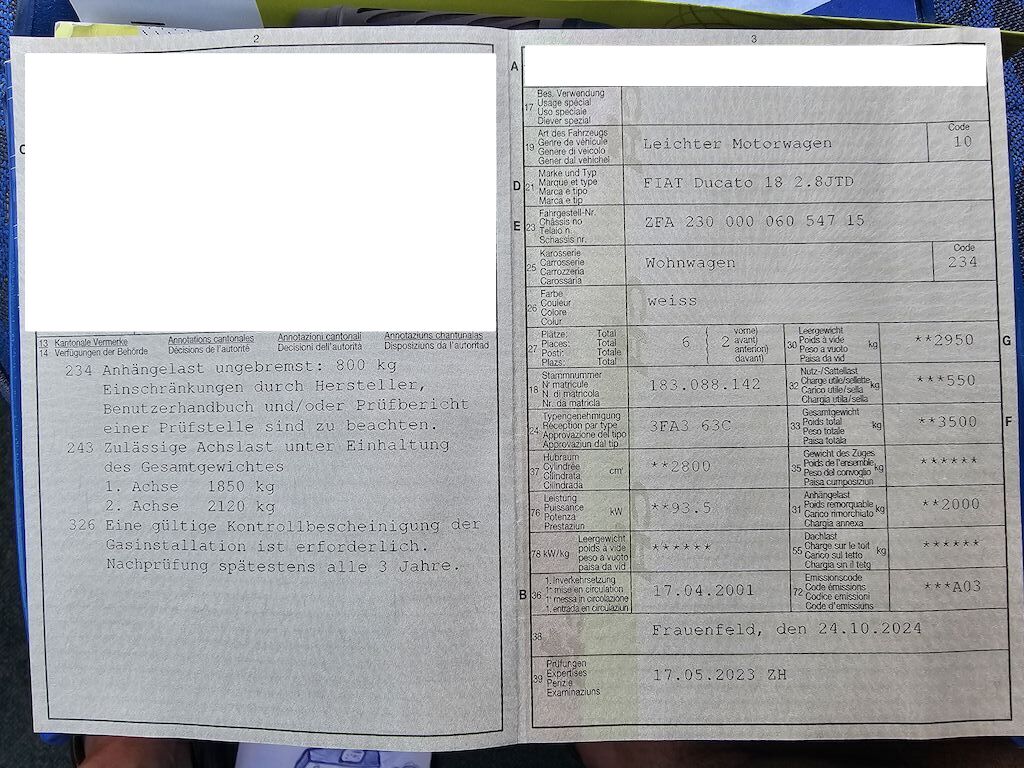 2
C
13 Kantonale Vermerke Annotations cantonales Annotazioni cantonali Annotaziuns chantunalas
14 Verfügungen der Behörde Décisions de l'autorité Decisioni dell'autorità Disposiziuns da l'autoritad
234 Anhängelast ungebremst: 800 kg
Einschränkungen durch Hersteller,
Benutzerhandbuch und/oder Prüfbericht
einer Prüfstelle sind zu beachten.
243 Zulässige Achslast unter Einhaltung
des Gesamtgewichtes
1. Achse 1850 kg
2. Achse 2120 kg
326 Eine gültige Kontrollbescheinigung der
Gasinstallation ist erforderlich.
Nachprüfung spätestens alle 3 Jahre.
3
A
17 Bes. Verwendung
Usage spécial
Uso speciale
Diever spezial
19 Art des Fahrzeugs
Genre de véhicule
Genere di veicolo
Gener dal vehichel
Leichter Motorwagen
Code
10
D 21 Marke und Typ
Marque et type
Marca e tipo
Marca e tip
FIAT Ducato 18 2.8JTD
E 23 Fahrgestell-Nr.
Châssis no
Telaio n.
Schassis nr.
ZFA 230 000 060 547 15
25 Karosserie
Carrosserie
Carrozzeria
Carossaria
Wohnwagen
Code
234
26 Farbe
Couleur
Colore
Colur
weiss
27 Plätze: Total
Places: Total
Posti: Totale
Plazs: Total
6 ( 2 vorne)
avant)
anteriori)
davant)
30 Leergewicht
Poids à vide
Peso a vuoto
Paisa da vid
kg
**2950
G
18 Stammnummer
N° matricule
N. di matricola
Nr. da matricla
183.088.142
32 Nutz-/Sattellast
Charge utile/sellette
Carico utile/sella
Chargia utila/sella
kg
***550
24 Typengenehmigung
Réception par type
Approvazione del tipo
Approvaziun dal tip
3FA3 63C
33 Gesamtgewicht
Poids total
Peso totale
Paisa totala
kg
**3500
F
37 Hubraum
Cylindrée
Cilindrata
Cilindrada
cm³
**2800
35 Gewicht des Zuges
Poids de l'ensemble
Peso del convoglio
Paisa cumposiziun
kg
******
76 Leistung
Puissance
Potenza
Prestaziun
kW
**93.5
31 Anhängelast
Poids remorquable
Carico rimorchiato
Chargia annexa
kg
**2000
78 kW/kg
Leergewicht
poids à vide
peso a vuoto
paisa da vid
******
55 Dachlast
Charge sur le toit
Carico sul tetto
Chargia sin il tetg
kg
******
B 36 1. Inverkehrsetzung
1re mise en circulation
1a messa in circolazione
1. entrada en circulaziun
17.04.2001
72 Emissionscode
Code émissions
Codice emissioni
Code d'emissiuns
***A03
38 Frauenfeld, den 24.10.2024
39 Prüfungen
Expertises
Perizie
Examinaziuns
17.05.2023 ZH